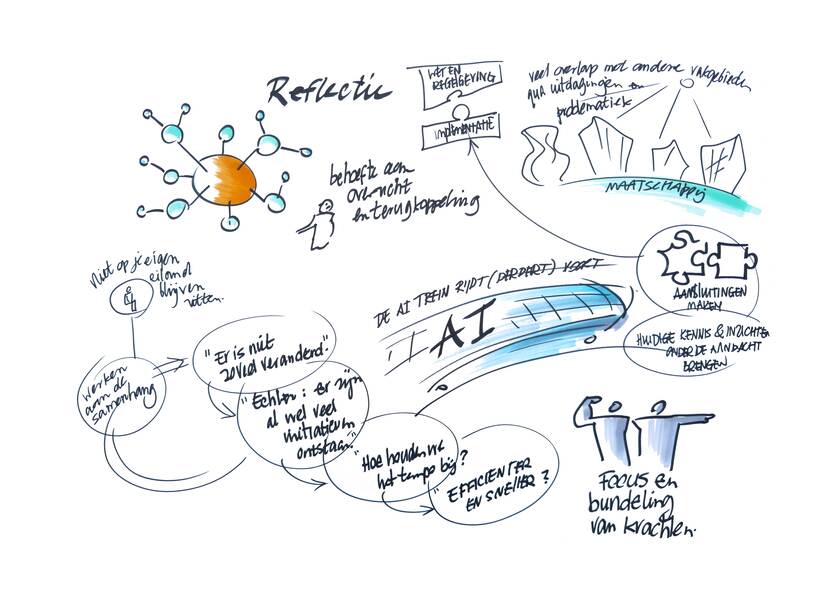 Reflectie
WET EN
REGELGEVING
IMPLEMENTATIE
veel overlap met andere vakgebieden
qua uitdagingen en
problematiek
MAATSCHAPPIJ
behoefte aan
overzicht
en terugkoppeling
niet op je eigen
eiland
blijven
zitten.
werken
aan de
samenhang
"Er is niet
zoveel veranderd."
"Echter: er zijn
al wel veel
initiatieven
ontstaan."
"Hoe houden we
het tempo bij?
"EFFICIENTER
EN SNELLER?
DE AI TREIN RIJDT VOORT
AI
AANSLUITINGEN
MAKEN
HUIDIGE KENNIS & INZICHTEN
ONDER DE AANDACHT
BRENGEN
FOCUS en
bundeling
van krachten.